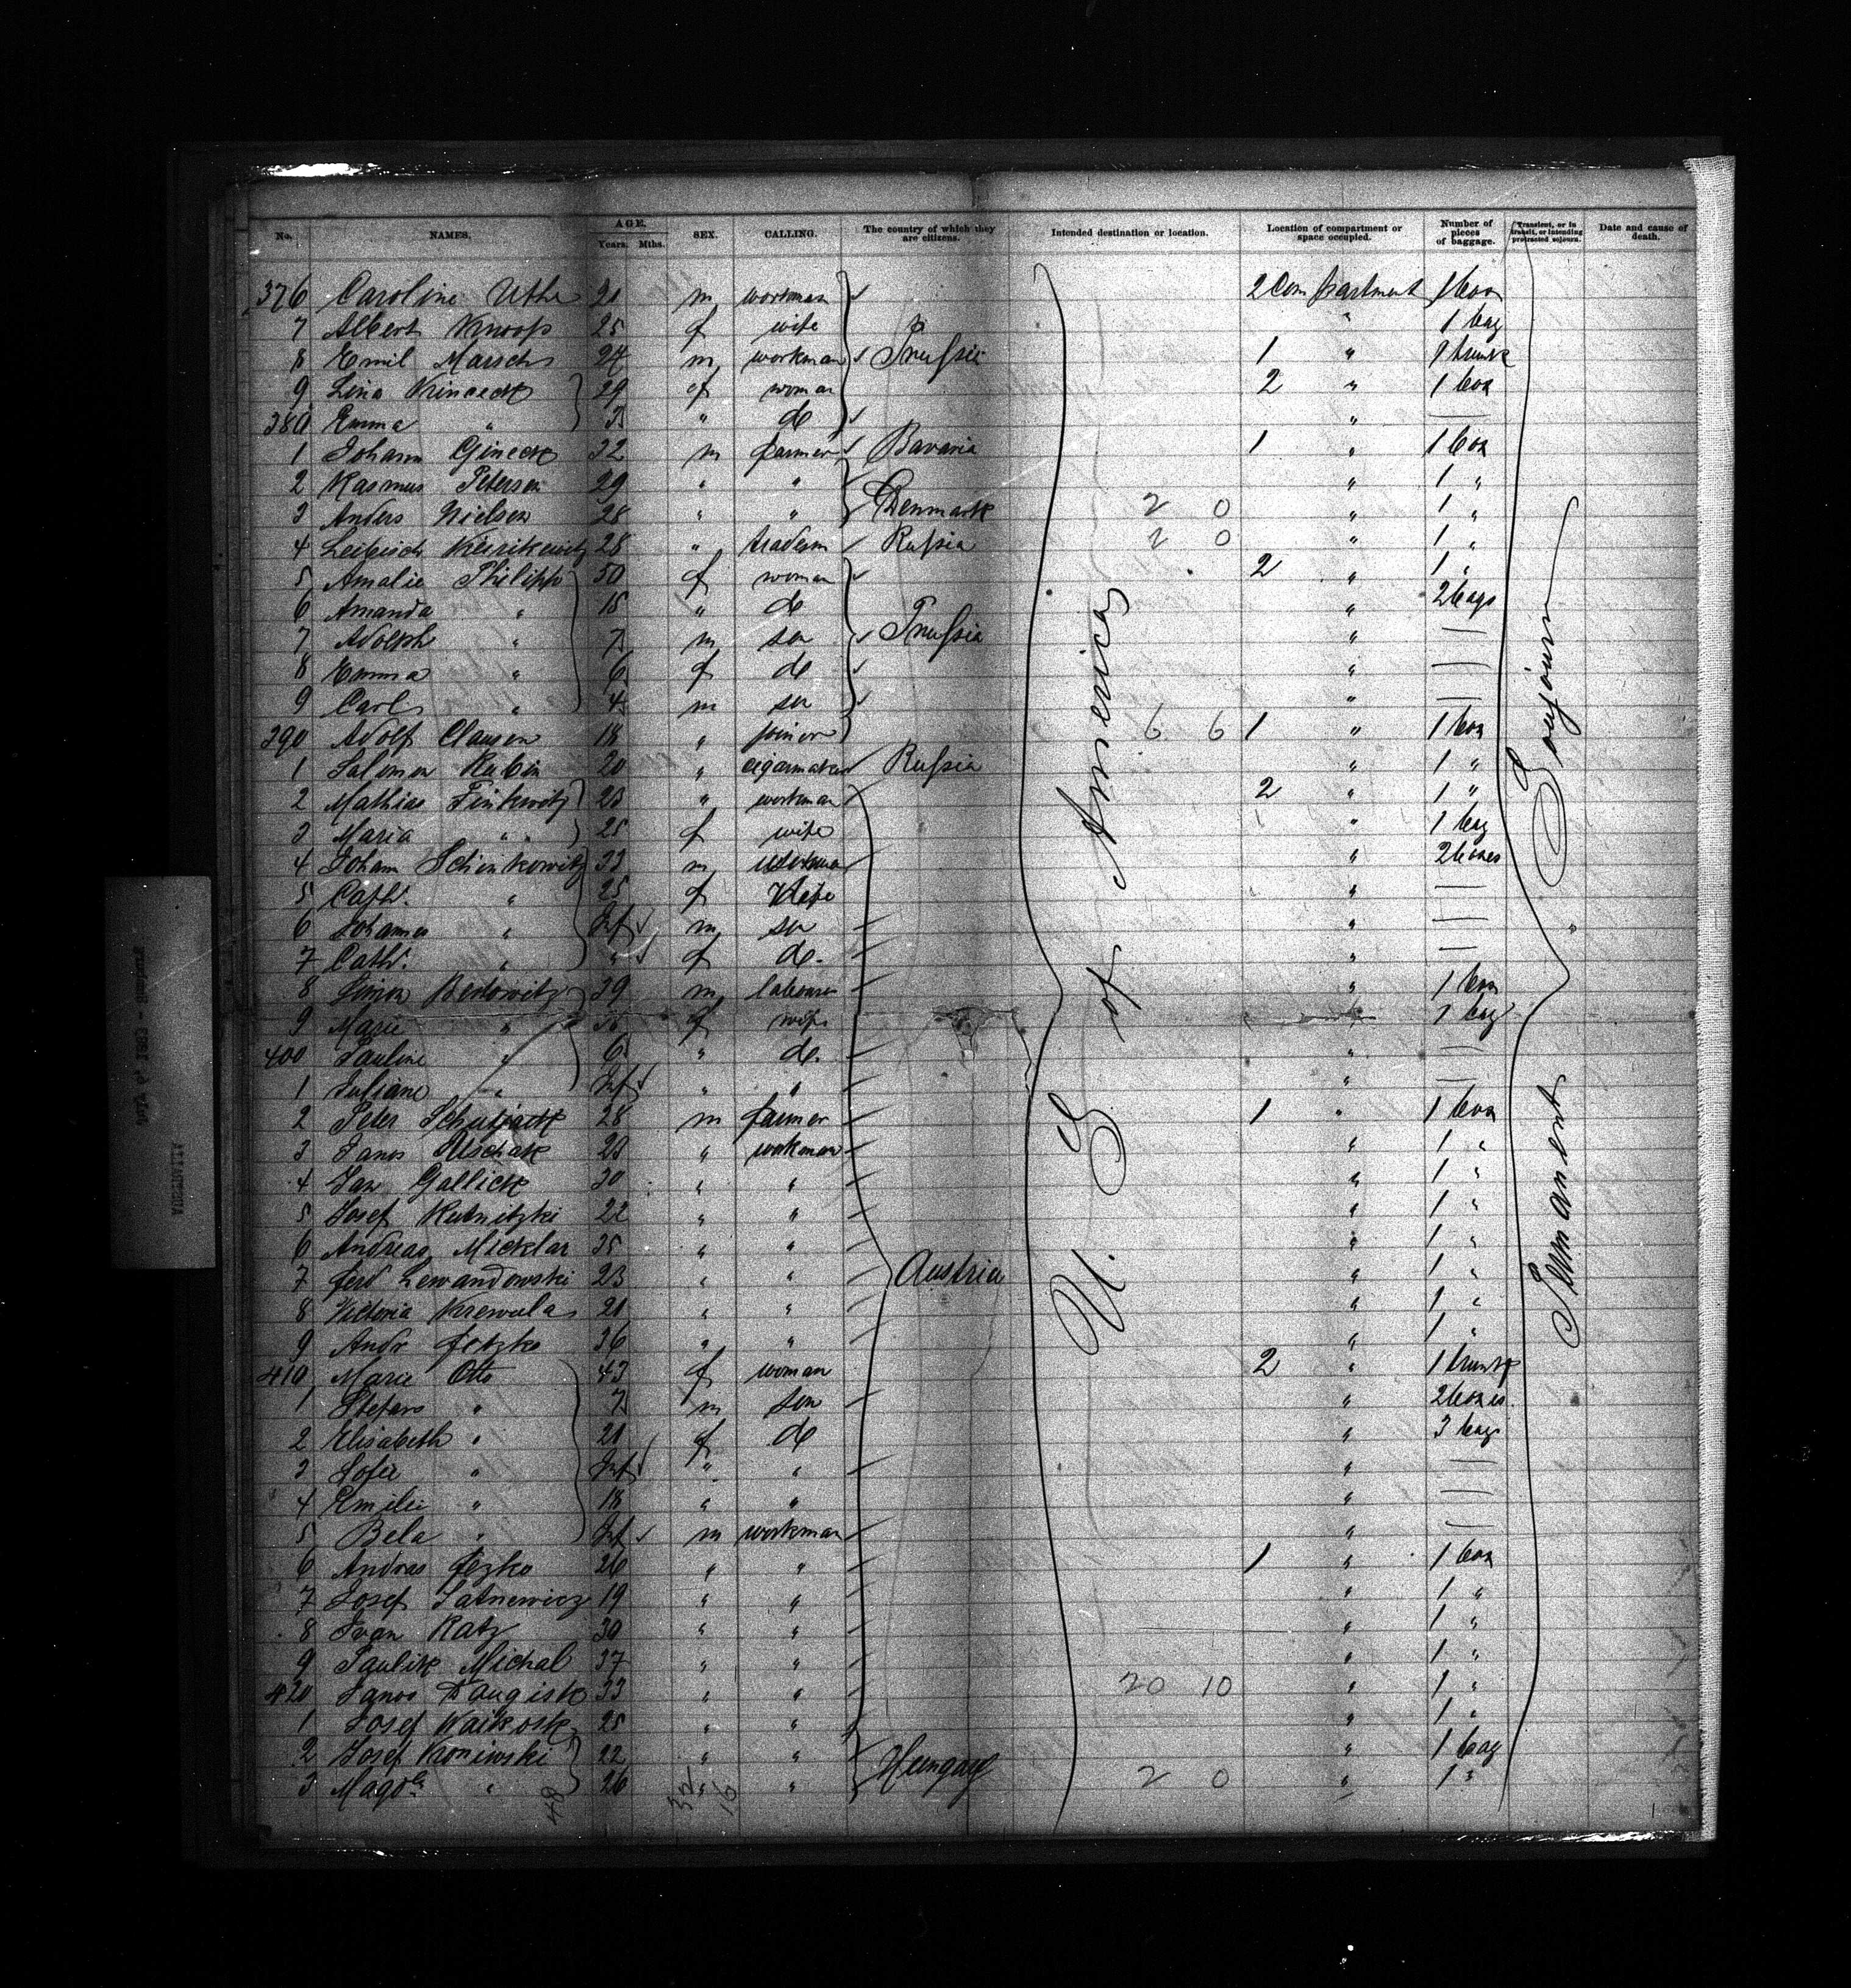 No. NAMES. AGE. Years. Mths. SEX. CALLING. The country of which they are citizens. Intended destination or location. Location of compartment or space occupied. Number of pieces of baggage. Transient, or in transit, or intending protracted sojourn. Date and cause of death.
376 Caroline Uthe 21 m workman 2 Compartment 1 box
7 Albert Knoops 25 f wife " 1 bag
8 Emil Marsch 24 m workman Prussia 1 " 1 trunk
9 Lina 29 f woman 2 " 1 box
380 Emma " 3 " do "
1 Johann Gineck 32 m farmer Bavaria 1 " 1 box
2 Rasmus Petersen 29 " " " 1 "
3 Anders Nielsen 28 " " Denmark 2 0 " 1 "
4 28 " tradesm Russia 2 0 " 1 "
5 Amalie Philipp 50 f woman 2 " 1 "
6 Amanda " 18 " do " 2 bags
7 Adolph " 7 m son Prussia "
8 Emma " 6 f do "
9 Carl " 4 m son "
390 Adolf Clausen 18 " joiner 6 6 1 " 1 box
1 Salomon Rubin 20 " cigarmaker Russia " 1 "
2 Mathias Finkwitz 23 " workman 2 " 1 "
3 Maria " 25 f wife " 1 bag
4 Johann Schinkowitz 33 m workman " 2 boxes
5 Cath. " 25 f wife "
6 Johannes " Inf m son "
7 Cath. " " f do. "
8 Simon Bedowitz 39 m labourer " 1 box
9 Marie " f wife 1 bag
400 Pauline " 6 " do. "
1 Juliane " Inf " " "
2 Peter 28 m farmer 1 " 1 box
3 Janos 23 " workman " 1 "
4 Jan Gallick 30 " " " 1 "
5 Josef Rutnitzki 22 " " " 1 "
6 Andreas Micklar 35 " " " 1 "
7 Ferd Lewandowski 23 " " Austria " 1 "
8 Victoria Krewulas 21 " " " 1 "
9 Andr Jetzko 36 " " " 1 "
410 Marie Otto 43 f woman 2 " 1 trunk
1 Stefans " 7 m son " 2 boxes
2 Elisabeth " 21 f do " 3 bags
3 Sofie " Inf " " "
4 Emilie " 18 " " "
5 Bela " Inf m workman "
6 Andras Jezko 26 " " 1 " 1 box
7 Josef Satnewicz 19 " " " 1 "
8 Ivan Katz 30 " " " 1 "
9 Paulik Michal 37 " " " 1 "
420 Janos 33 " " 20 10 " 1 "
1 Josef 25 " " " 1 "
2 Josef Kroniwski 22 " " " 1 bag
3 Magd. " 26 " " Hungary 2 0 " 1 "
U. S. of America
Permanent Sojourn
48
16